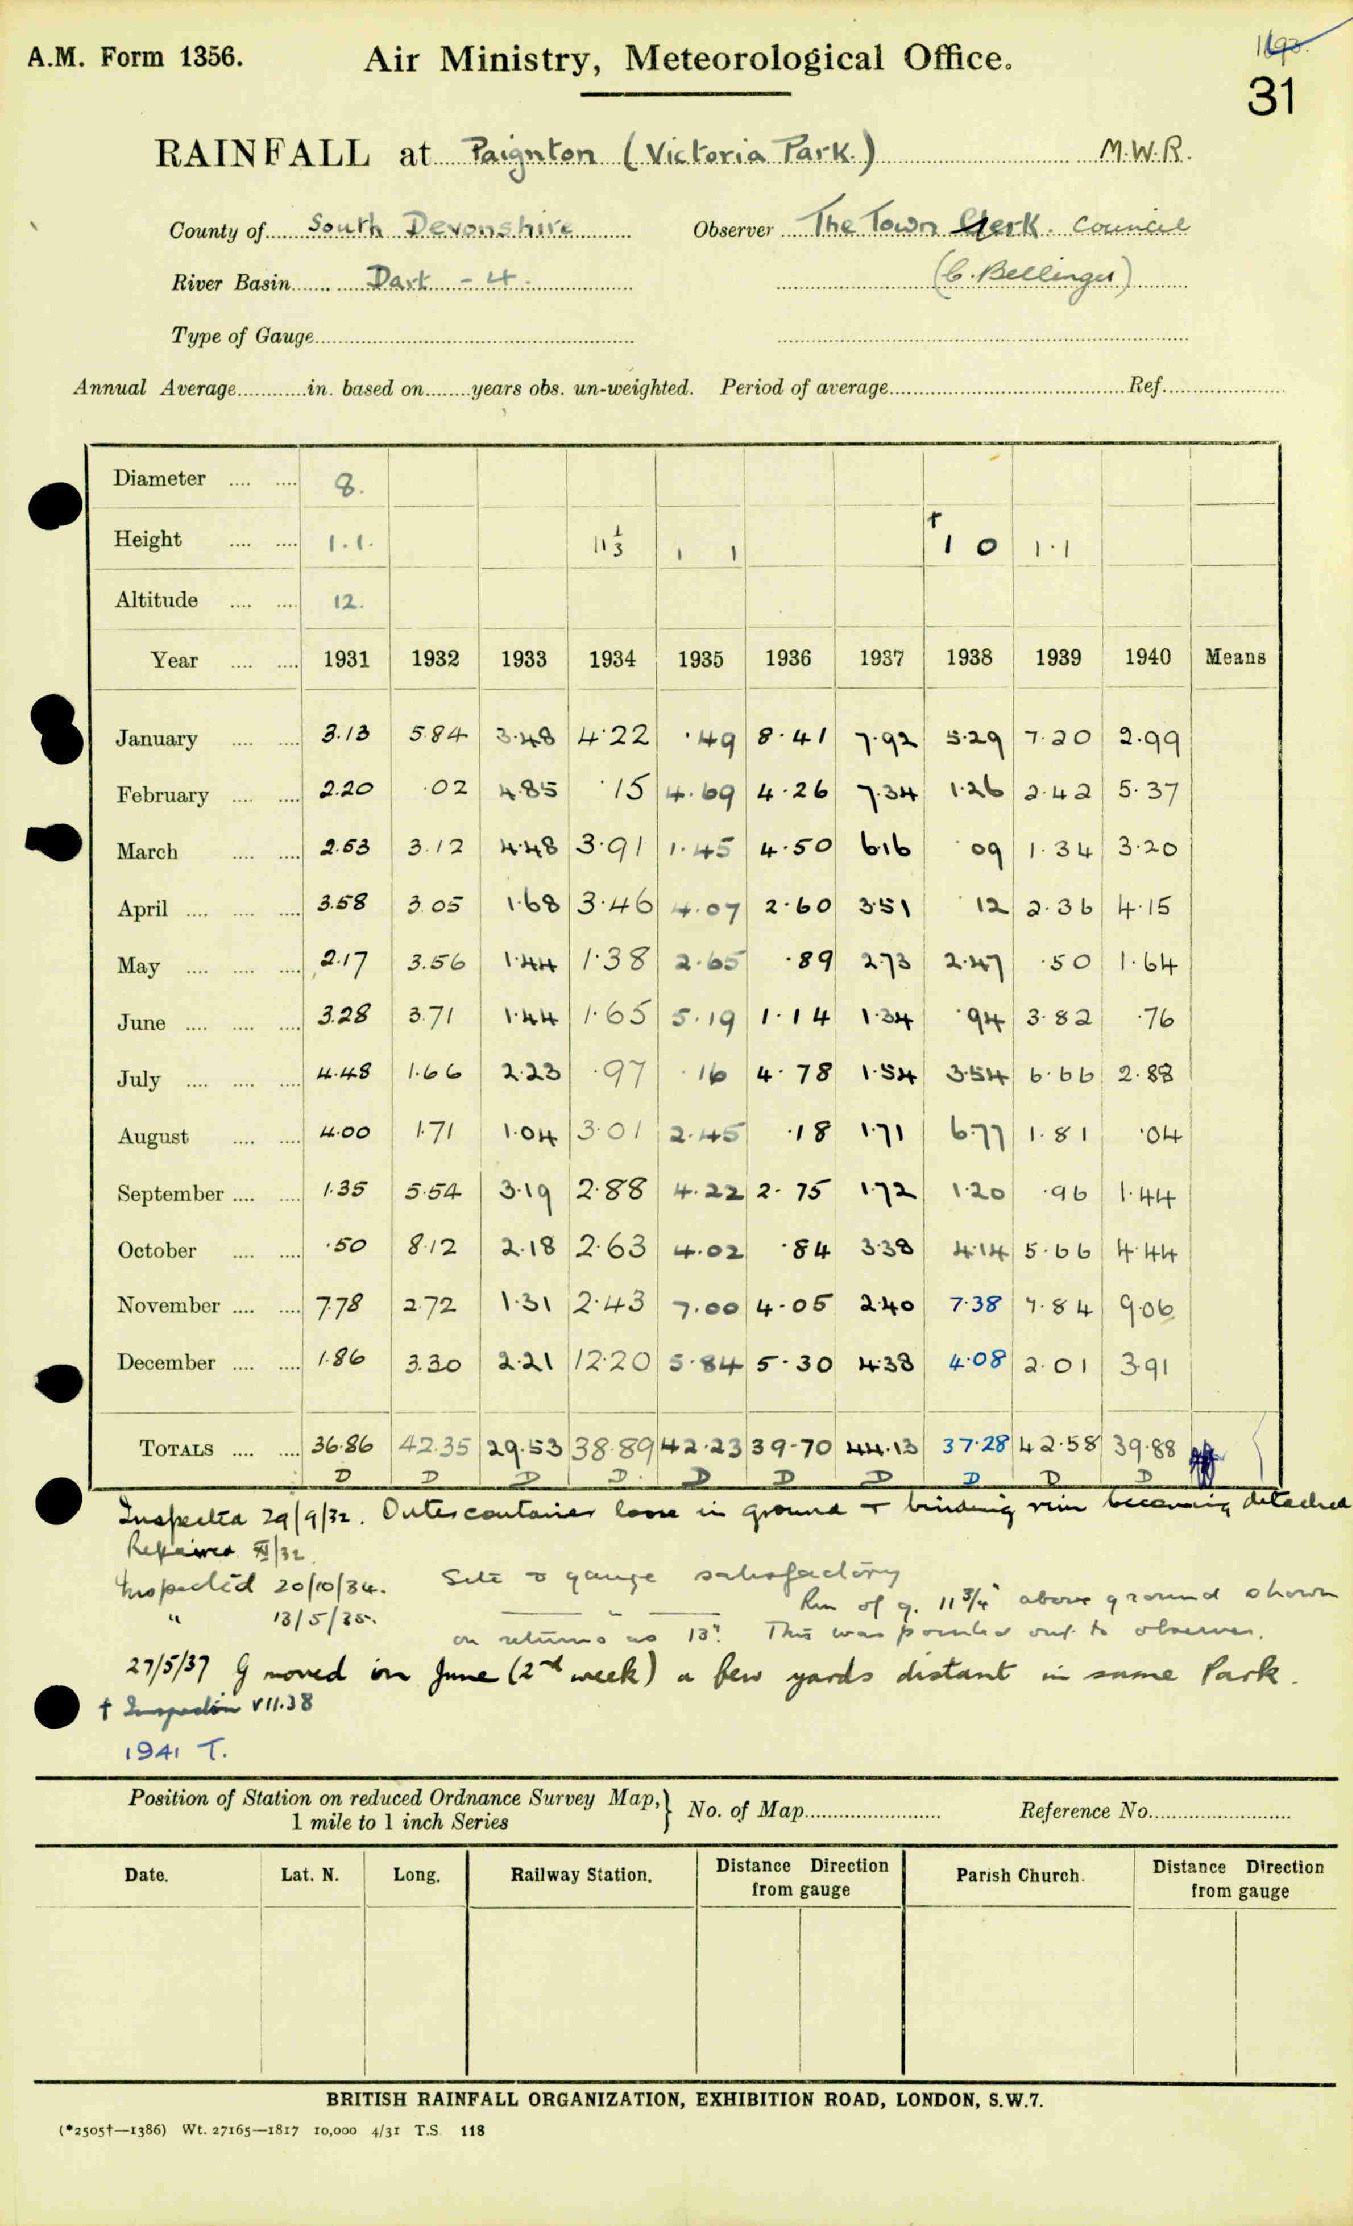 A.M. Form 1356. Air Ministry, Meteorological Office.
31
RAINFALL at Paignton (Victoria Park.) M.W.R.
County of South Devonshire Observer The Town Clerk. Council
River Basin Dart - 4. (C. Bellinger)
Type of Gauge
Annual Average in. based on years obs. un-weighted. Period of average Ref.
Diameter 8.
Height 1.1. 11 1/3 1 1 † 1 0 1.1
Altitude 12.
Year 1931 1932 1933 1934 1935 1936 1937 1938 1939 1940 Means
January 3.13 5.84 3.48 4.22 .49 8.41 7.92 5.29 7.20 2.99
February 2.20 .02 4.85 .15 4.69 4.26 7.34 1.26 2.42 5.37
March 2.53 3.12 4.48 3.91 1.45 4.50 6.16 .09 1.34 3.20
April 3.58 3.05 1.68 3.46 4.07 2.60 3.51 .12 2.36 4.15
May 2.17 3.56 1.44 1.38 2.65 .89 2.73 2.47 .50 1.64
June 3.28 3.71 1.44 1.65 5.19 1.14 1.34 .94 3.82 .76
July 4.48 1.66 2.23 .97 .16 4.78 1.54 3.54 6.66 2.88
August 4.00 1.71 1.04 3.01 2.45 .18 1.71 6.77 1.81 .04
September 1.35 5.54 3.19 2.88 4.22 2.75 1.72 1.20 .96 1.44
October .50 8.12 2.18 2.63 4.02 .84 3.38 4.14 5.66 4.44
November 7.78 2.72 1.31 2.43 7.00 4.05 2.40 7.38 7.84 9.06
December 1.86 3.30 2.21 12.20 5.84 5.30 4.38 4.08 2.01 3.91
TOTALS 36.86 42.35 29.53 38.89 42.23 39.70 44.13 37.28 42.58 39.88
D D D D. D D D D D D
Inspected 29/9/32. Outer container loose in ground + binding rim becoming detached
Repaired XI/32
Inspected 20/10/34. Site & gauge satisfactory
" 13/5/35. " Rim of g. 11 3/4" above ground shown
on returns as 13". This was pointed out to observer.
27/5/37 G moved in June (2nd week) a few yards distant in same Park.
† Inspection VII.38
1941 T.
Position of Station on reduced Ordnance Survey Map, 1 mile to 1 inch Series } No. of Map Reference No.
Date. Lat. N. Long. Railway Station. Distance Direction from gauge Parish Church. Distance Direction from gauge
BRITISH RAINFALL ORGANIZATION, EXHIBITION ROAD, LONDON, S.W.7.
(*2505†—1386) Wt. 27165—1817 10,000 4/31 T.S. 118